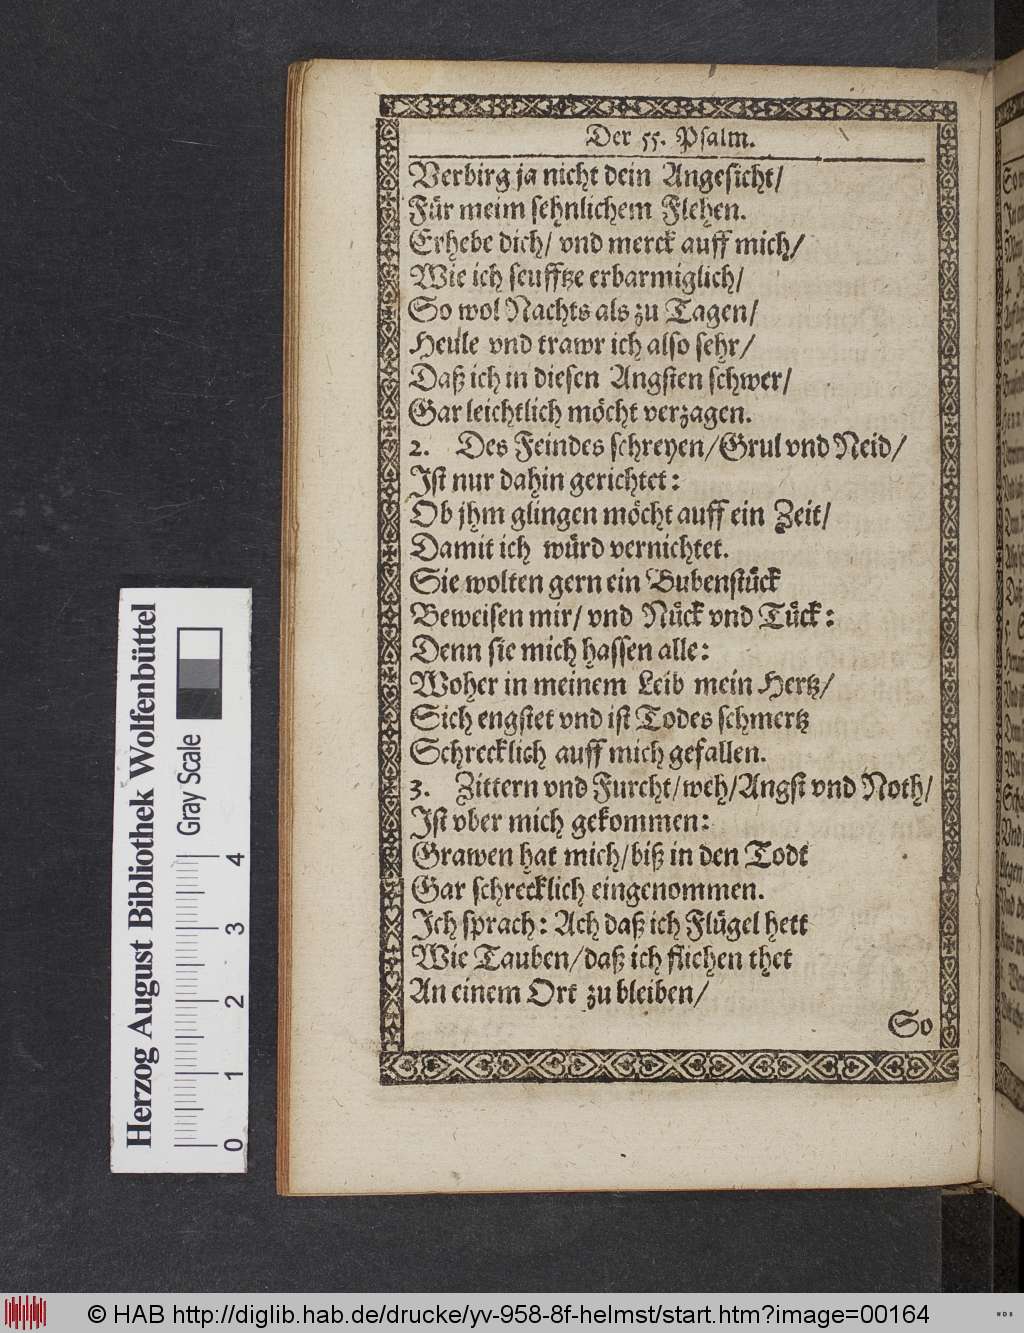 Der 55. Psalm.
Verbirg ja nicht dein Angesicht/
Für meim sehnlichem Flehen.
Erhebe dich/ vnd merck auff mich/
Wie ich seufftze erbarmiglich/
So wol Nachts als zu Tagen/
Heule vnd trawr ich also sehr/
Daß ich in diesen Angsten schwer/
Gar leichtlich möcht verzagen.
2. Des Feindes schreyen/Grul vnd Neid/
Ist nur dahin gerichtet:
Ob jhm glingen möcht auff ein Zeit/
Damit ich würd vernichtet.
Sie wolten gern ein Bubenstück
Beweisen mir/ vnd Nück vnd Tück:
Denn sie mich hassen alle:
Woher in meinem Leib mein Hertz/
Sich engstet vnd ist Todes schmertz
Schrecklich auff mich gefallen.
3. Zittern vnd Furcht/weh/Angst vnd Noth/
Ist vber mich gekommen:
Grawen hat mich/biß in den Todt
Gar schrecklich eingenommen.
Ich sprach: Ach daß ich Flügel hett
Wie Tauben/daß ich fliehen thet
An einem Ort zu bleiben/
So
Herzog August Bibliothek Wolfenbüttel
Gray Scale
0 1 2 3 4
© HAB http://diglib.hab.de/drucke/yv-958-8f-helmst/start.htm?image=00164